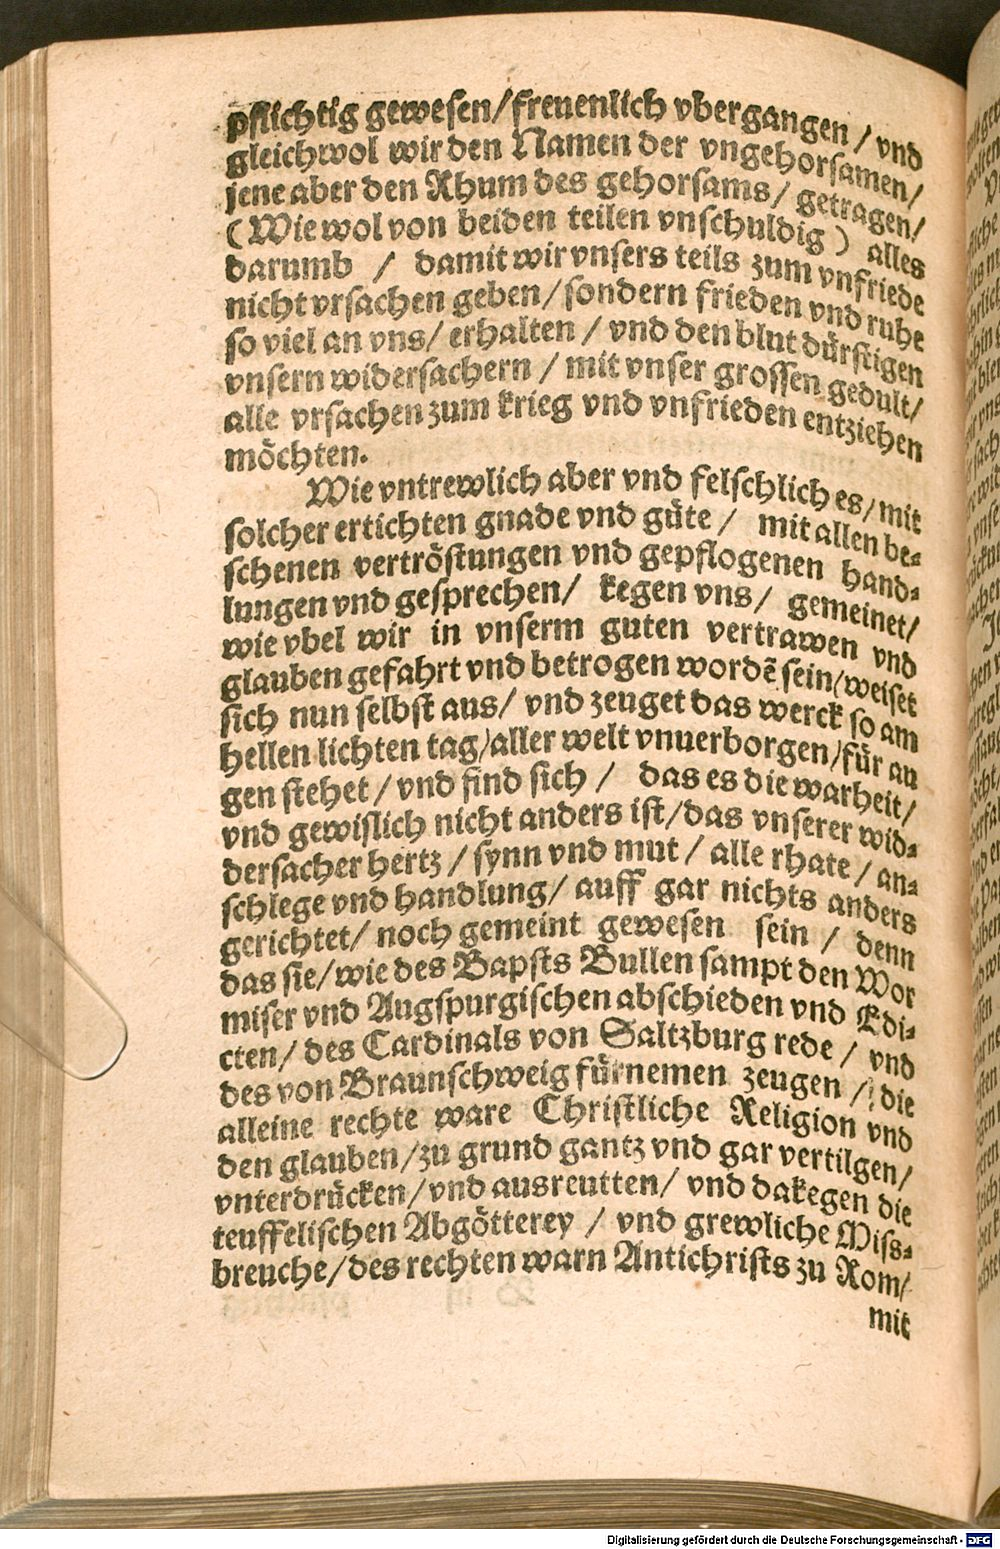 pflichtig gewesen/ freuenlich vbergangen / vnd
gleichwol wir den Namen der vngehorsamen/
jene aber den Rhum des gehorsams/ getragen/
(Wie wol von beiden teilen vnschuldig) alles
darumb / damit wir vnsers teils zum vnfriede
nicht vrsachen geben/ sondern frieden vnd ruhe
so viel an vns/ erhalten / vnd den blut dürstigen
vnsern widersachern / mit vnser grossen gedult/
alle vrsachen zum krieg vnd vnfrieden entziehen
möchten.
Wie vntrewlich aber vnd felschlich es/ mit
solcher ertichten gnade vnd güte / mit allen be-
schenen vertröstungen vnd gepflogenen hand-
lungen vnd gesprechen/ kegen vns/ gemeinet/
wie vbel wir in vnserm guten vertrawen vnd
glauben gefahrt vnd betrogen wordē sein/ weiset
sich nun selbst aus/ vnd zeuget das werck so am
hellen lichten tag/ aller welt vnuerborgen/ für au
gen stehet / vnd find sich / das es die warheit/
vnd gewislich nicht anders ist/ das vnserer wid-
dersacher hertz / synn vnd mut / alle rhate / an-
schlege vnd handlung/ auff gar nichts anders
gerichtet/ noch gemeint gewesen sein / denn
das sie/ wie des Bapsts Bullen sampt den Wor
miser vnd Augspurgischen abschieden vnd Edi-
cten/ des Cardinals von Saltzburg rede / vnd
des von Braunschweig fürnemen zeugen / die
alleine rechte ware Christliche Religion vnd
den glauben/ zu grund gantz vnd gar vertilgen/
vnterdrücken/ vnd ausreutten/ vnd dakegen die
teuffelischen Abgötterey / vnd grewliche Miss-
breuche/ des rechten warn Antichrists zu Rom/
mit
Digitalisierung gefördert durch die Deutsche Forschungsgemeinschaft - DFG